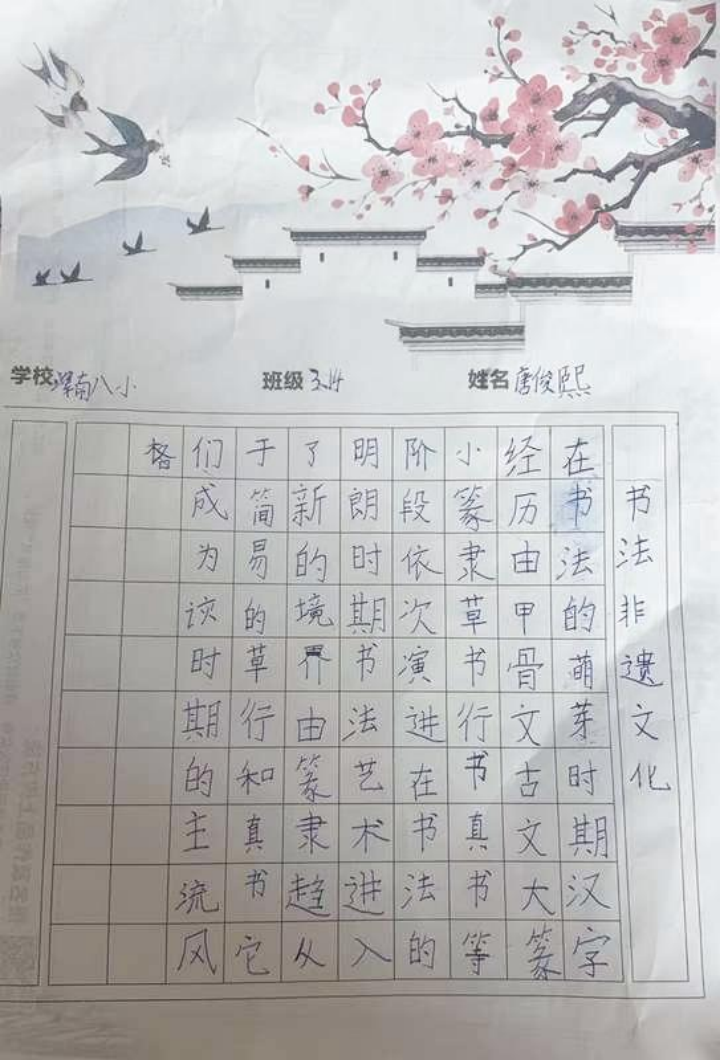 学校 南八小 班级 3.14 姓名 唐俊熙
书法非遗文化
在书法的萌芽时期汉字
经历由甲骨文古文大篆
小篆隶草书行书真书等
阶段依次演进在书法的
明朗时期书法艺术进入
了新的境界由篆隶趋从
于简易的草行和真书它
们成为该时期的主流风
格